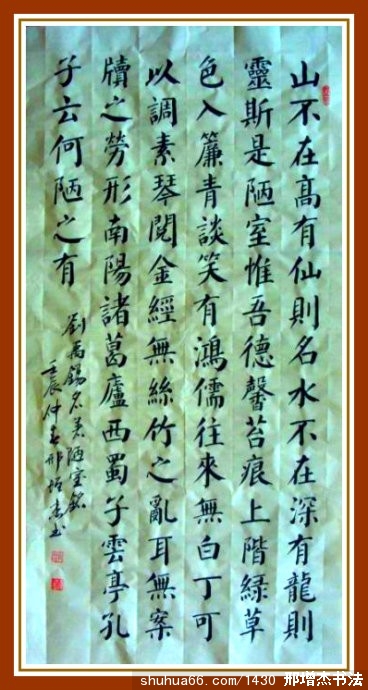 山不在高有仙則名水不在深有龍則
靈斯是陋室惟吾德馨苔痕上階綠草
色入簾青談笑有鴻儒往來無白丁可
以調素琴閱金經無絲竹之亂耳無案
牘之勞形南陽諸葛廬西蜀子雲亭孔
子云何陋之有
劉禹錫名陋室銘
壬辰仲春邢增杰書
shuhua66.com/1430 邢增杰书法